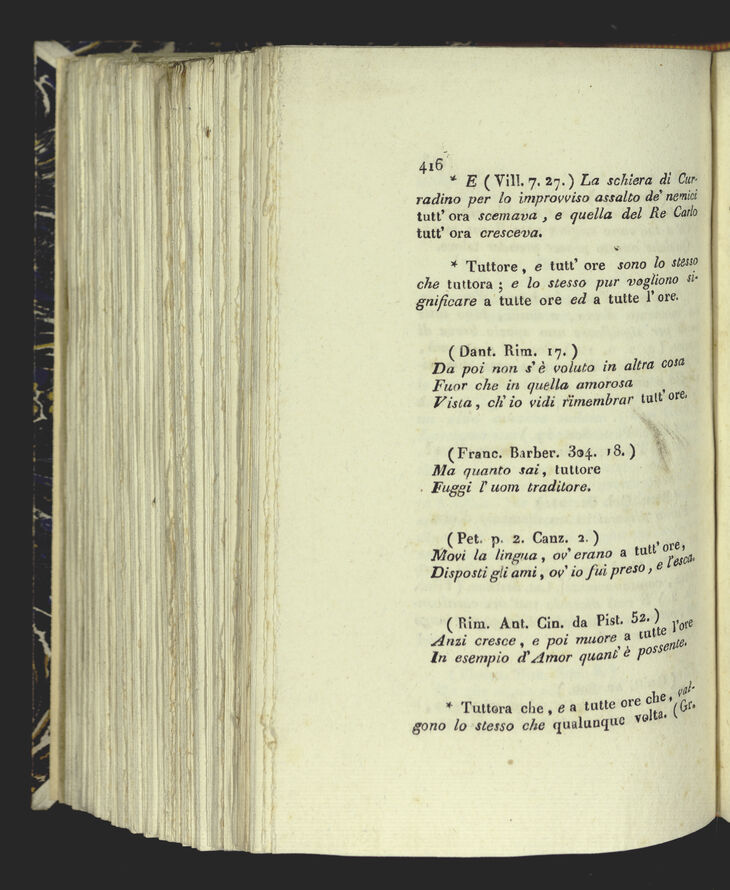 416
* E (Vill. 7. 27.) La schiera di Cur-
radino per lo improvviso assalto de' nemici
tutt' ora scemava, e quella del Re Carlo
tutt' ora cresceva.
* Tuttore, e tutt' ore sono lo stesso
che tuttora; e lo stesso pur vogliono si-
gnificare a tutte ore ed a tutte l'ore.
(Dant. Rim. 17.)
Da poi non s'è voluto in altra cosa
Fuor che in quella amorosa
Vista, ch'io vidi rimembrar tutt' ore.
(Franc. Barber. 304. 18.)
Ma quanto sai, tuttore
Fuggi l'uom traditore.
(Pet. p. 2. Canz. 2.)
Movi la lingua, ov' erano a tutt' ore,
Disposti gli ami, ov' io fui preso, e l'esca.
(Rim. Ant. Cin. da Pist. 52.)
Anzi cresce, e poi muore a tutte l'ore
In esempio d'Amor quant' è possente.
* Tuttora che, e a tutte ore che, val-
gono lo stesso che qualunque volta. (Gr.